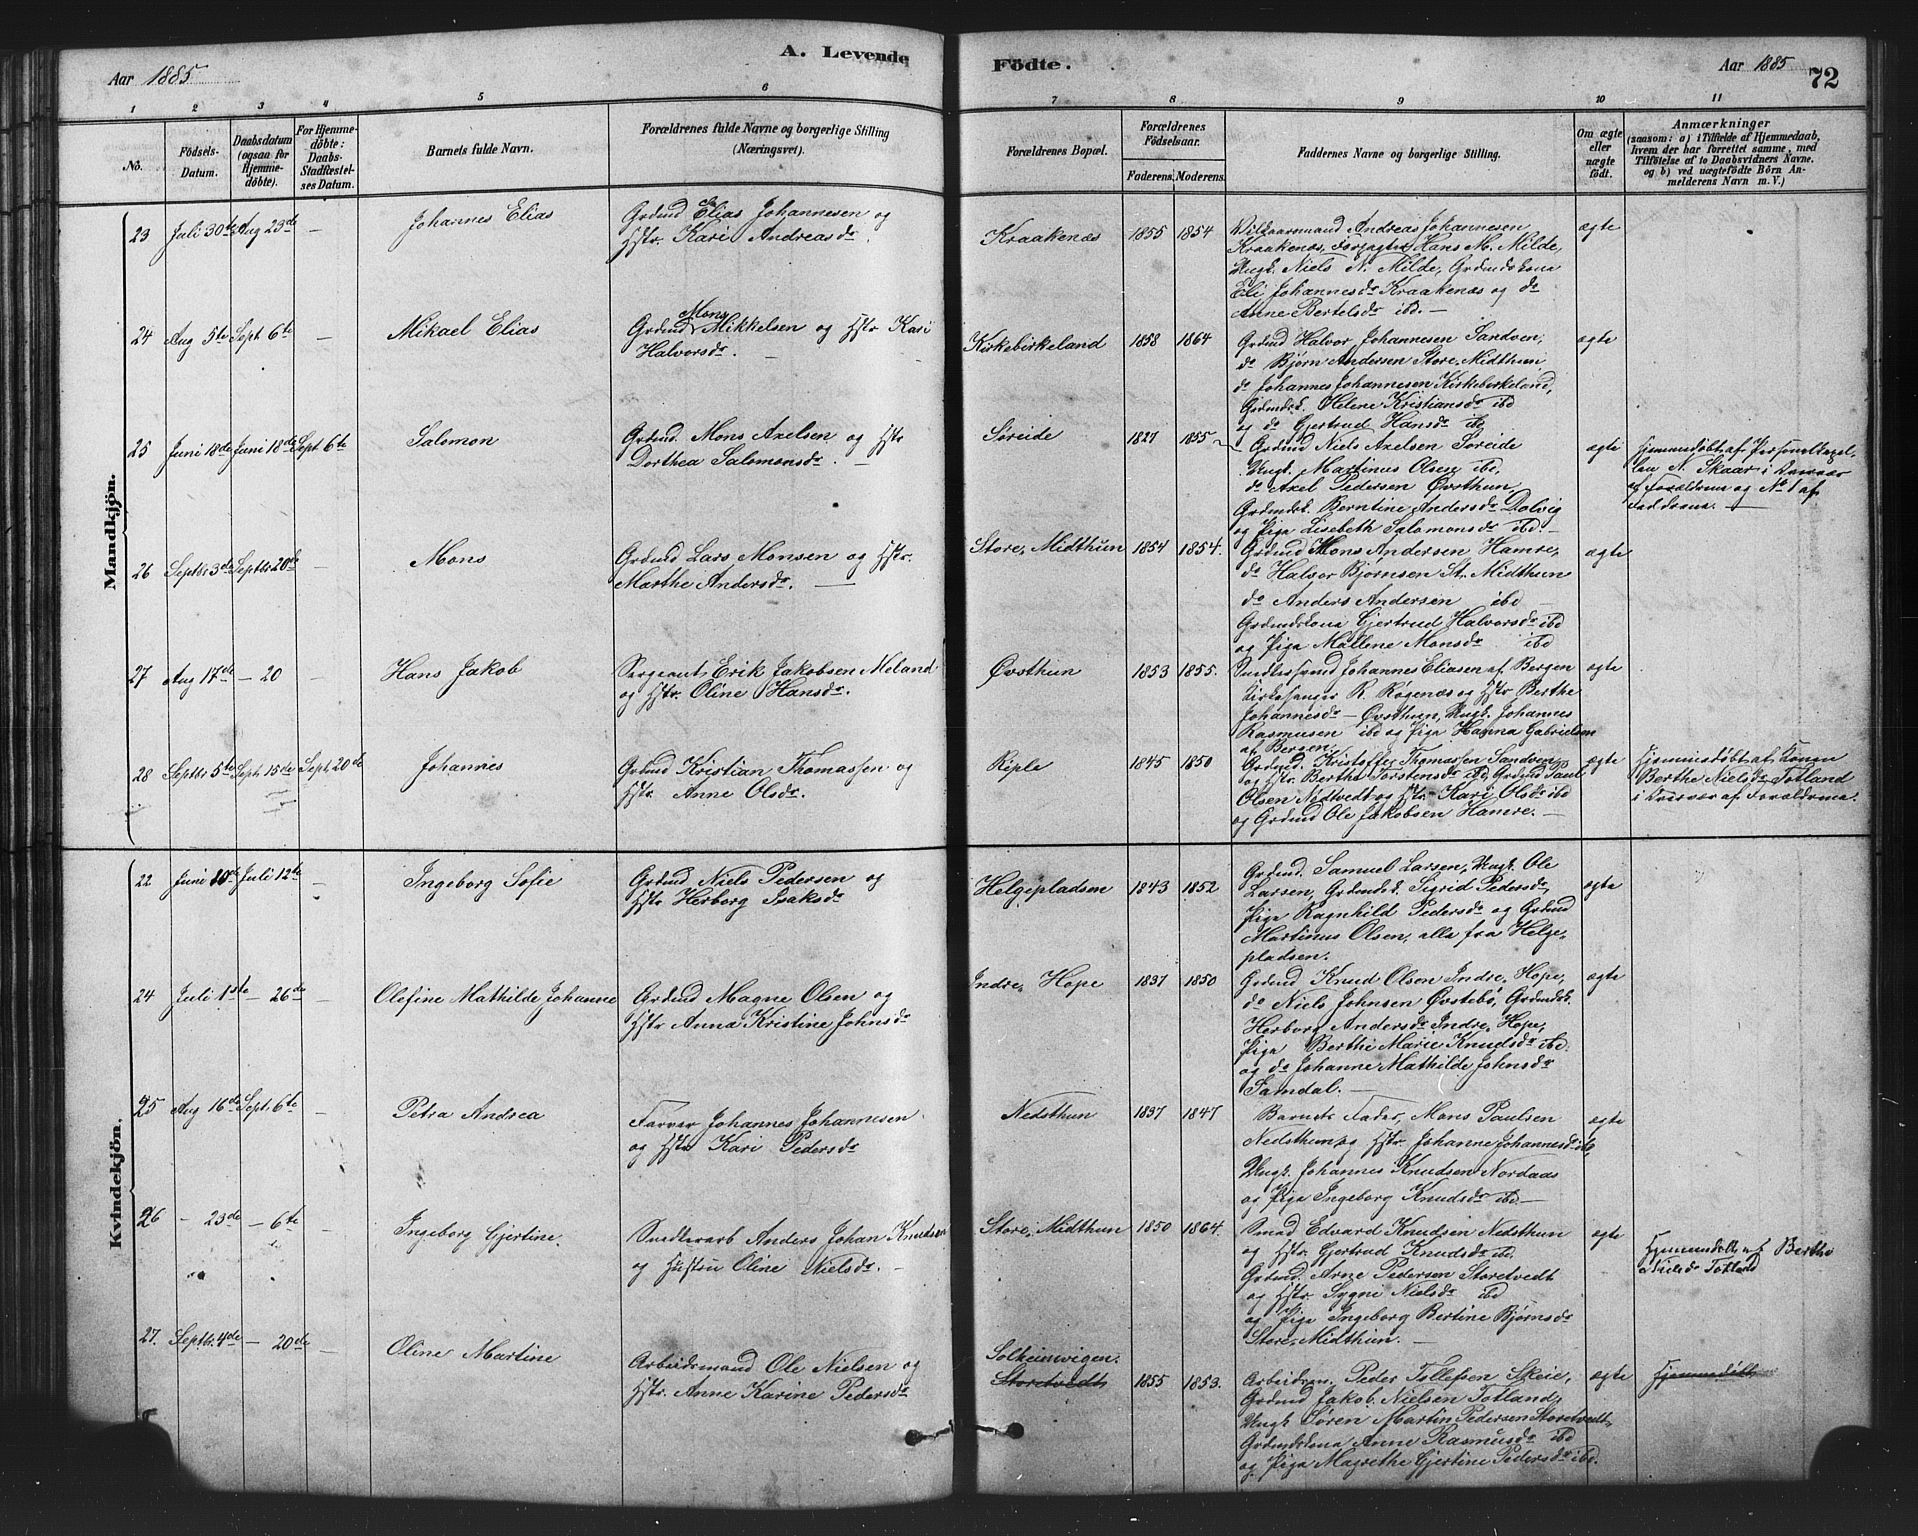 Aar 1885
A. Levende
Födte.
Aar 1885
72
1 2 3 4 5 6 7 8 9 10 11
No.
Födsels-
Datum.
Daabsdatum
(ogsaa for
Hjemme-
döbte).
For Hjemme-
döbte:
Daabs-
Stadfæstel-
ses Datum.
Barnets fulde Navn.
Forældrenes fulde Navne og borgerlige Stilling
(Næringsvei).
Forældrenes Bopæl.
Forældrenes
Födselsaar.
Faderens. Moderens.
Faddernes Navne og borgerlige Stilling.
Om ægte
eller
uægte
født.
Anmærkninger
(saasom: a) i Tilfælde af Hjemmedaab,
hvem der har forrettet samme, med
Tilföielse af to Daabsvidners Navne.
og b) ved uægtefödte Börn An-
melderens Navn m. V.)
Mandkjön.
23 Juli 30te Aug 23de — Johannes Elias
Grdmd Elias Johannesen og
Hstr. Kari Andreasdr.
Kraakenæs 1855 1854
Vilkaarmand Andreas Johannesen
Kraakenæs, Forpagter Hans M. Milde,
Ungk. Niels N. Milde, Grdmdskona
Eli Johannesdr Kraakenæs og do
Anne Bertelsdr ibd. —
ægte
24 Aug 5te Sept 6te — Mikael Elias
Grdmd Mons Mikkelsen og Hstr Kari
Halvorsdr. —
Kirkebirkeland 1858 1864
Grdmd Halvor Johannesen Sandven,
do Bjørn Andersen Store, Midthun
do Johannes Johannesen Kirkebirkeland,
Grdmdsk. Helene Kristiansdr ibd
og do Gjertrud Hansdr ibd
ægte
25 Juni 18de Juni 18de Sept 6te Salomon
Grdmd. Mons Axelsen og Hstr
Dorthea Salomonsdr. —
Søreide 1827 1855
Grdmd Niels Axelsen Søreide
Ungk. Martinus Olsen ibd.
do Axel Pedersen Øvsthun,
Grdmdsk. Berntine Andersdr Dolvig
og Pige Lisebeth Salomonsdr ibd. —
ægte
Hjemmedøbt af
N. Skaar i Nærvær
af Forældrene og No 1 af
Fadderne. —
26 Septbr 3de Septbr. 20de — Mons
Grdmd Lars Monsen og Hstr.
Marthe Andersdr. —
Store, Midthun 1854 1854.
Grdmd Mons Andersen Hamre,
do Halvor Bjørnsen St. Midthun
do Anders Andersen ibd
Grdmdskona Gjertrud Halvorsdr ibd
og Pige Mallene Monsdr ibd
ægte
27 Aug 17de — 20 — Hans Jakob
Sergeant Erik Jakobsen Meland
og Hstr. Oline Hansdr.
Øvsthun 1853 1855.
Johannes Eliasen af Bergen
Kirkesanger R. Røgenæs og Hstr Berthe
Johannesdr — Øvsthun, Ungk. Johannes
Rasmusen ibd og Pige Hanna Gabrielsen
af Bergen.
ægte
28 Septbr 5te Sept. 15de Sept. 20de Johannes
Grdmd Kristian Thomassen og
Hstr. Anne Olsdr.
Riple 1845 1850
Grdmd. Kristoffer Thomassen Sandven
og Hstr. Berthe Torstensdr ibd, Grdmd Paul
Olsen Nøttvedt og Hstr. Kari Olsdr ibd
og Grdmd Ole Jakobsen Hamre. —
ægte
Hjemmedøbt af Konen
Berthe Nielsdr Totland
i Nærvær af Forældrene.
Kvindekjön.
22 Juni 10de Juli 12te — Ingeborg Sofie
Grdmd Niels Pedersen og
Hstr Herborg Isaksdr
Helgepladsen 1843 1852
Grdmd. Samuel Larsen, Ungk. Ole
Larsen, Grdmdsk. Sigrid Pedersdr,
Pige Ragnhild Pedersdr og Grdmd
Martinus Olsen, alle fra Helge,
pladsen.
ægte
24 Juli 1ste — 26de — Olefine Mathilde Johanne
Grdmd Magne Olsen og
Hstr Anna Kristine Johnsdr
Indre, Hope 1837 1850
Grdmd Knud Olsen Indre, Hope,
do Niels Johnsen Øvstebø, Grdmdsk.
Herborg Andersdr Indre, Hope,
Pige Berthe Marie Knudsdr ibd.
og do Johanne Mathilde Johnsdr
Samdal. —
ægte
25 Aug 16de Sept. 6te — Petra Andrea
Farver Johannes Johannesen
og Hstr Kari Pedersdr
Nedsthun 1837 1847
Barnets Fader, Mons Paulsen
Nedsthun og Hstr. Johanne Johannesdr ibd,
Ungk. Johannes Knudsen Nordaas
og Pige Ingeborg Knudsdr ibd —
ægte
26 — 23de — 6te — Ingeborg Gjertine.
Anders Johan Knudsen
og Hustru Oline Nielsdr. —
Store, Midthun 1850 1864.
Smed Edvard Knudsen Nedsthun
og Hstr. Gjertrud Knudsdr ibd
Grdmd. Arne Pedersen Storetvedt
og Hstr. Sygni Nielsdr ibd
og Pige Ingeborg Bertine Bjørnsdr
Store, Midthun. —
ægte
Hjemmedøbt af Berthe
Nielsdr Totland
27. Septbr. 4de — 20de — Oline Martine
Arbeidsmand Ole Nielsen og
Hstr. Anne Karine Pedersdr
Solheimsvigen.
Storetvedt 1855 1853.
Arbeidsm. Peder Tollefsen Skeie,
Grdmd Jakob Nielsen Totland,
Ungk Søren Martin Pedersen Storetvedt,
Grdmdskona Anne Rasmusdr ibd
og Pige Magrethe Gjertine Pedersdr ibd.
ægte
Hjemmedøbt